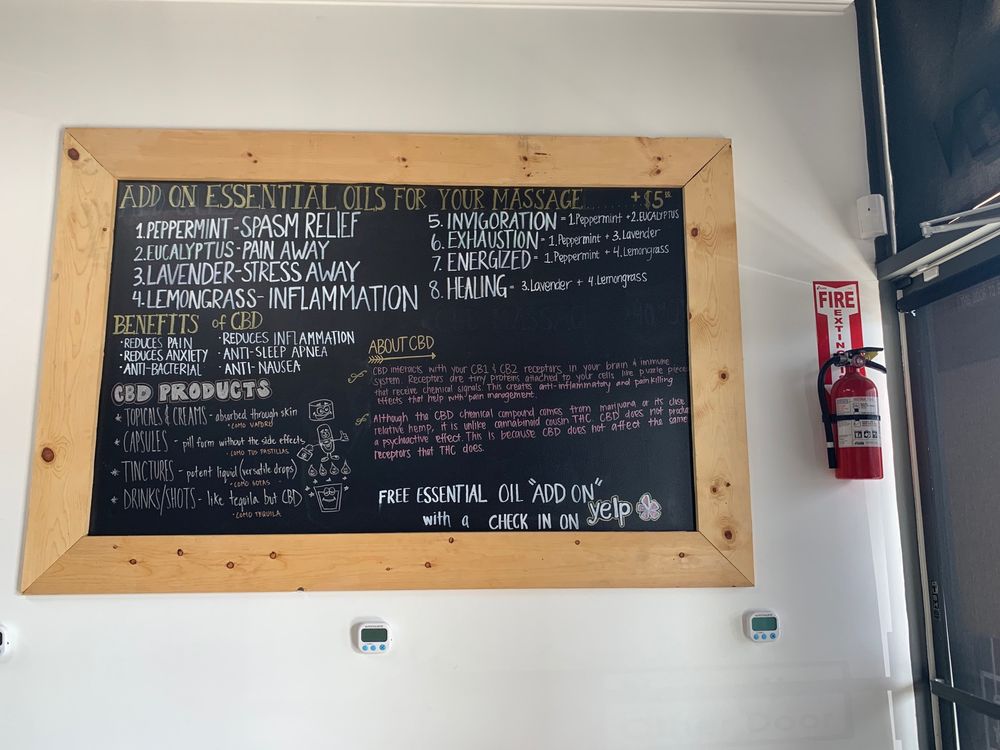 ADD ON ESSENTIAL OILS FOR YOUR MASSAGE +$5
1. PEPPERMINT - SPASM RELIEF
2. EUCALYPTUS - PAIN AWAY
3. LAVENDER - STRESS AWAY
4. LEMONGRASS - INFLAMMATION
5. INVIGORATION = 1. Peppermint + 2. EUCALYPTUS
6. EXHAUSTION = 1. Peppermint + 3. Lavender
7. ENERGIZED = 1. Peppermint + 4. Lemongrass
8. HEALING = 3. Lavender + 4. Lemongrass
BENEFITS of CBD
• REDUCES PAIN
• REDUCES ANXIETY
• ANTI-BACTERIAL
• REDUCES INFLAMMATION
• ANTI-SLEEP APNEA
• ANTI NAUSEA
CBD PRODUCTS
* TOPICALS & CREAMS - absorbed through skin
• COMO VAPORU
* CAPSULES - pill form without the side effects
• COMO TUS PASTILLAS
* TINCTURES - potent liquid (versatile drops)
• COMO GOTAS
* DRINKS/SHOTS - like tequila but CBD
• COMO TEQUILA
ABOUT CBD
CBD interacts with your CB1 & CB2 receptors in your brain & immune
system. Receptors are tiny proteins attached to your cells like private pieces
that receive chemical signals. This creates anti-inflammatory and pain killing
effects that help with pain management.
Although the CBD chemical compound comes from marijuana or its close
relative hemp, it is unlike cannabinoid cousin THC, CBD does not produce
a psychoactive effect. This is because CBD does not affect the same
receptors that THC does.
FREE ESSENTIAL OIL "ADD ON"
with a CHECK IN ON yelp
FIRE
EXTIN